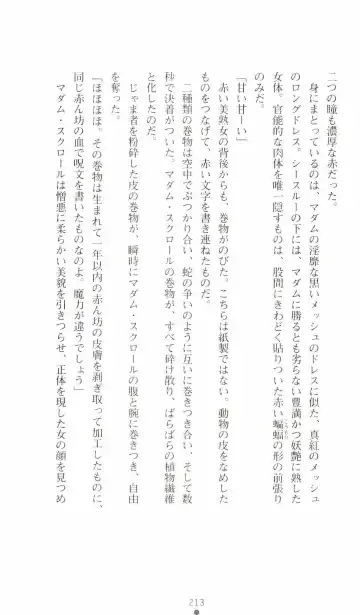 二つの瞳も濃厚な赤だった。
身にまとっているのは、マダムの淫靡な黒いメッシュのドレスに似た、真紅のメッシュ
のロングドレス。シースルーの下には、マダムに勝るとも劣らない豊満かつ妖艶に熟した
女体。官能的な肉体を唯一隠すものは、股間にきわどく貼りついた赤い蝙蝠の形の前張り
のみだ。
「甘い甘ーい」
赤い美熟女の背後からも、巻物がのびた。こちらは紙製ではない。動物の皮をなめした
ものをつなげて、赤い文字を書き連ねたものだ。
二種類の巻物は空中でぶつかり合い、蛇の争いのように互いに巻きつき合い、そして数
秒で決着がついた。マダム・スクロールの巻物が、すべて砕け散り、ばらばらの植物繊維
と化したのだ。
じゃま者を粉砕した皮の巻物が、瞬時にマダム・スクロールの腹と腕に巻きつき、自由
を奪った。
「ほほほほ。その巻物は生まれて一年以内の赤ん坊の皮膚を剥ぎ取って加工したものに、
同じ赤ん坊の血で呪文を書いたものなのよ。魔力が違うでしょう」
マダム・スクロールは憎悪に柔らかい美貌を引きつらせ、正体を現した女の顔を見つめ
213